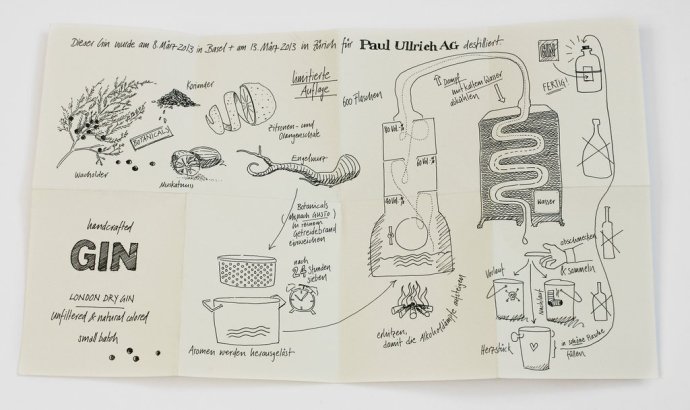 Dieser Gin wurde am 8. März 2013 in Basel + am 13. März 2013 in Zürich für Paul Ullrich AG destilliert.
Koriander
limitierte
Auflage
600 Flaschen
BOTANICALS
Zitronen- und
Orangenschale
Wacholder
Muskatnuss
Engelwurz
handcrafted
GIN
LONDON DRY GIN
unfiltered & natural colored
small batch
Botanicals
(je nach GUSTO)
in reinem
Getreidebrand
einweichen
nach
24 Stunden
sieben
Aromen werden herausgelöst
80 Vol.-%
60 Vol.-%
40 Vol.-%
erhitzen,
damit die Alkoholdämpfe aufsteigen
Dampf
mit kaltem Wasser
abkühlen
Wasser
FERTIG!
abschmecken
& sammeln
Vorlauf
Nachlauf
Herzstück
in schöne Flasche
füllen